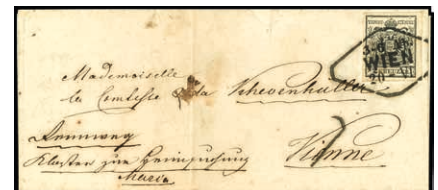 WIEN
20
Mademoiselle
la Comtesse Ida Khevenhüller
Rennweg
Kloster zur Heimsuchung
Mariä
Vienne